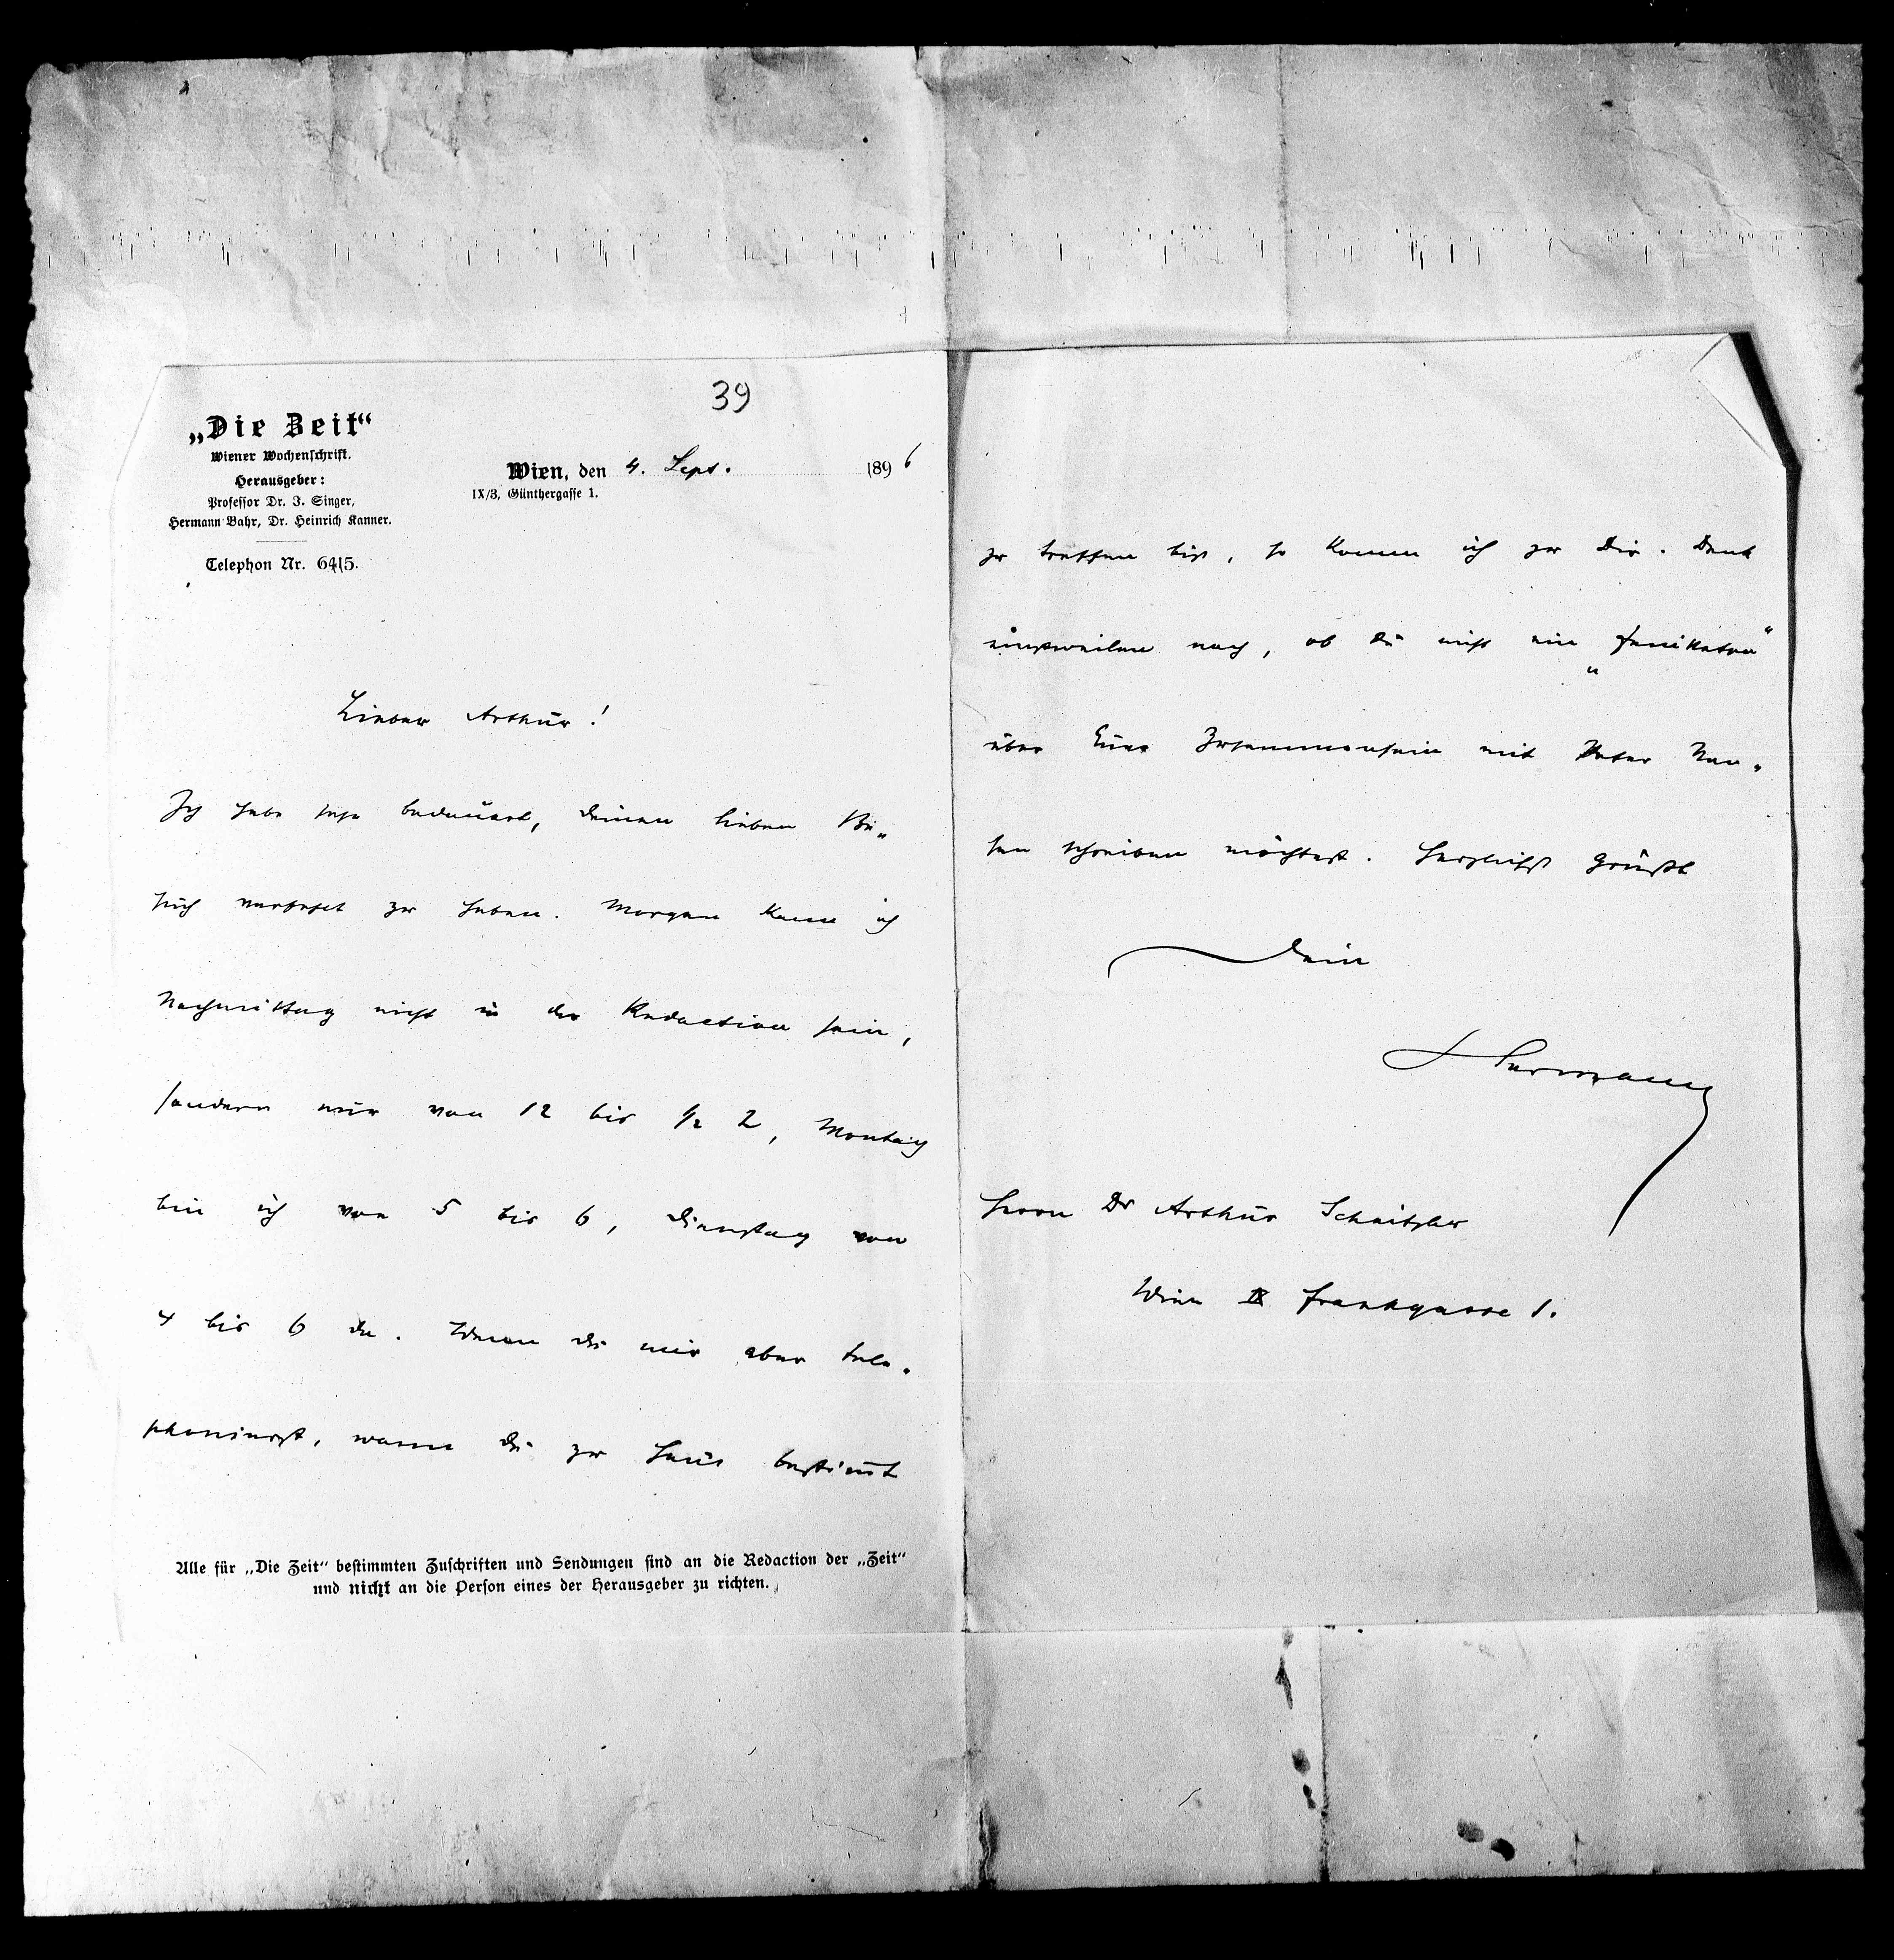 39
„Die Zeit“
Wiener Wochenschrift.
Herausgeber:
Professor Dr. J. Singer,
Hermann Bahr, Dr. Heinrich Kanner.
Telephon Nr. 6415.
Wien, den 4. Sept. 1896
IX/3, Günthergasse 1.
Lieber Arthur!
Ich habe sehr bedauert, Deinen lieben Be-
such verfehlt zu haben. Morgen kann ich
Nachmittag nicht in der Redaction sein,
sondern nur von 12 bis ½ 2, Montag
bin ich von 5 bis 6, Dienstag von
4 bis 6 da. Wenn Du mir aber tele-
phonierst, wann Du zu Haus bestimt
Alle für „Die Zeit“ bestimmten Zuschriften und Sendungen sind an die Redaction der „Zeit“
und nicht an die Person eines der Herausgeber zu richten.
zu treffen bist, so komme ich zu Dir. Denk
einstweilen nach, ob Du nicht ein „Feuilleton“
über Euer Zusammensein mit Peter Nan-
sen schreiben möchtest. Herzlichst grüßt
Dein
Hermann
Herrn Dr Arthur Schnitzler
Wien IX Frankgasse 1.